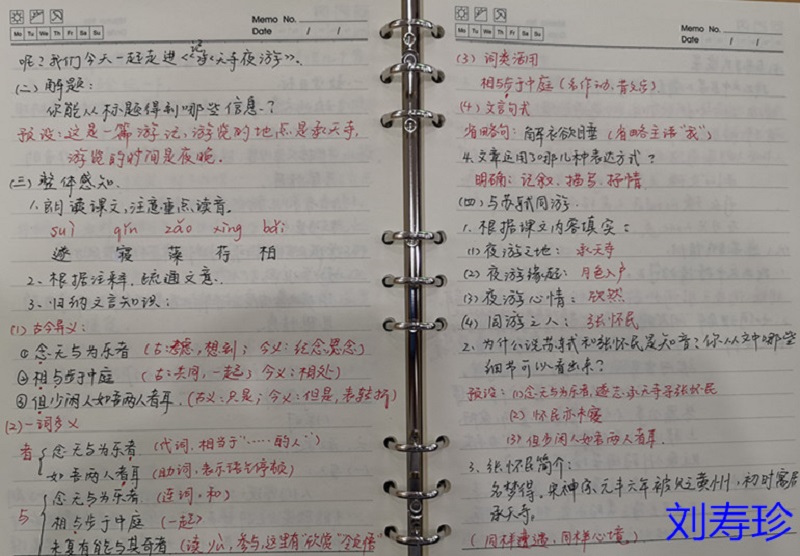 Memo No.
Mo Tu We Th Fr Sa Su
Date / /
呢？我们今天一起走进《记承天寺夜游》.
(二) 解题：
你能从标题得到哪些信息？
预设：这是一篇游记，游览的地点是承天寺，
游览的时间是夜晚.
(三) 整体感知.
1. 朗读课文，注意重点读音。
suì qǐn zǎo xìng bǎi
遂 寝 藻 荇 柏
2. 根据注释，疏通文意.
3. 归纳文言知识：
(1) 古今异义：
① 念无与为乐者 (古：考虑，想到；今义：纪念思念)
②相与步于中庭 (古：共同，一起；今义：相处)
③但少闲人如吾两人者耳. (古义：只是；今义：但是，表转折)
(2)一词多义
者 念无与为乐者 (代词，相当于"……的人")
如吾两人者耳 (助词，表示语气停顿)
与 念无与为乐者 (连词，和)
相与步于中庭 (一起)
未复有能与其奇者 (读yù，参与，这里有"欣赏""领悟"
Memo No.
Mo Tu We Th Fr Sa Su
Date / /
(3) 词类活用
相与步于中庭 (名作动，
(4) 文言句式
省略句：解衣欲睡 (省略主语"我")
4. 文章运用了哪几种表达方式？
明确：记叙、描写、抒情
(四) 与苏轼同游.
1. 根据课文内容填实：
(1) 夜游之地：承天寺
(2) 夜游缘起：月色入户
(3) 夜游心情：欣然
(4) 同游之人：张怀民
2. 为什么说苏轼和张怀民是知音？你从文中哪些
细节可以看出来？
预设：(1)念无与为乐者，遂至承天寺寻张怀民
(2) 怀民亦未寝
(3) 但少闲人如吾两人者耳.
3. 张怀民简介：
名梦得，宋神宗元丰六年被贬黄州，初时寓居
承天寺。
(同样遭遇，同样心境。)
刘寿珍